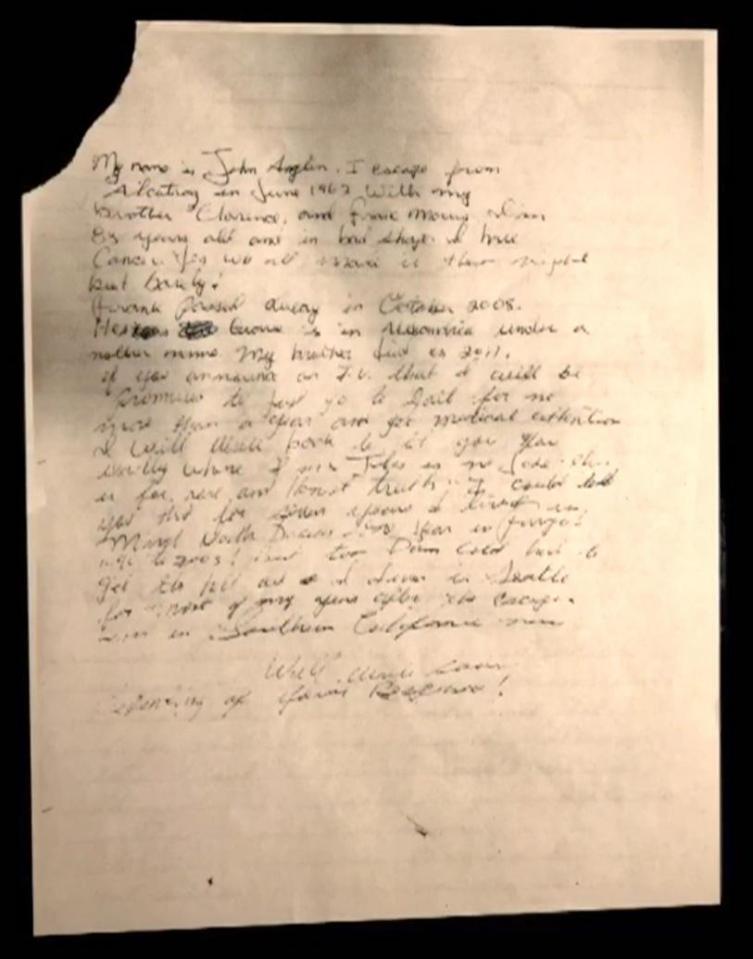 My name is John Anglin. I escape from
Alcatraz in June 1962 With my
brother Clarence, and Frank Morris. I'm
83 years old and in bad shape. I have
Cancer. Yes we all made it that night
but barely!
Frank passed away in October 2008.
His Grave is in under a
nother name. My brother died in 2011.
If you announce on T.V. that I will be
Promised to first go to Jail for no
more than a year and get medical attention
I will write back to let you know
exactly where I am. This is no joke this
is for real and Honest truth. I could tell
you that for seven years I lived in
Minot North Dakota and a year in Fargo
till 2003!
I lived in Seattle
for most of my years after the escape.
in Southern California now
Will write soon
of Your Response!